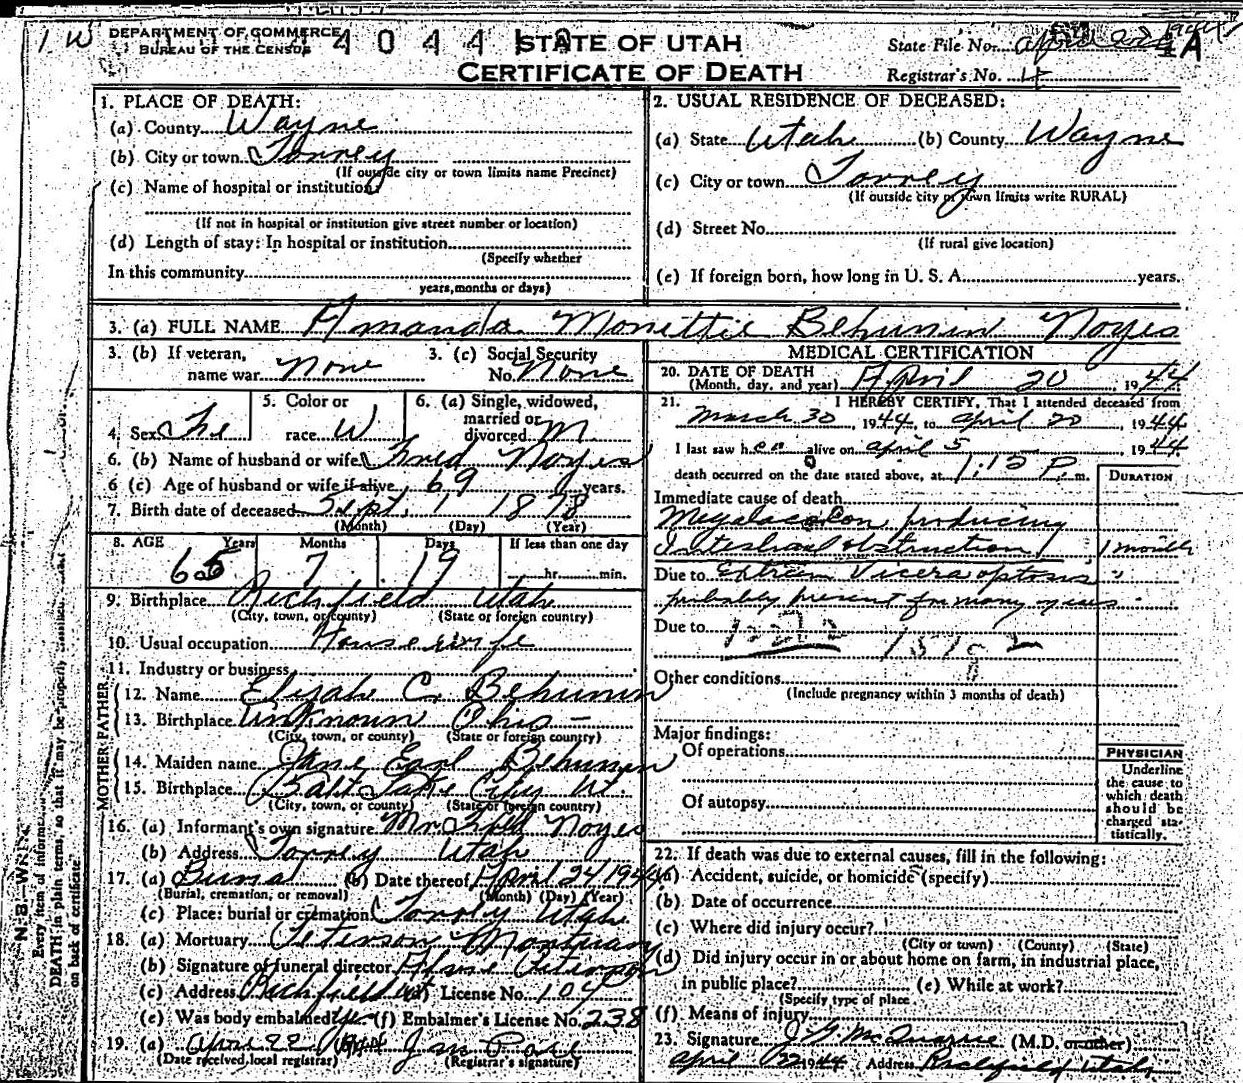 1 W DEPARTMENT OF COMMERCE
BUREAU OF THE CENSUS
STATE OF UTAH
CERTIFICATE OF DEATH
State File No.
Registrar's No. 4
1. PLACE OF DEATH:
(a) County Wayne
(b) City or town Torrey
(If outside city or town limits name Precinct)
(c) Name of hospital or institution
(If not in hospital or institution give street number or location)
(d) Length of stay: In hospital or institution
(Specify whether
In this community
years, months or days)
2. USUAL RESIDENCE OF DECEASED:
(a) State Utah (b) County Wayne
(c) City or town Torrey
(If outside city or town limits write RURAL)
(d) Street No.
(If rural give location)
(e) If foreign born, how long in U. S. A. years.
3. (a) FULL NAME Amanda Monittie Behunin Noyes
3. (b) If veteran,
name war None
3. (c) Social Security
No. None
4. Sex Fe
5. Color or
race W
6. (a) Single, widowed,
married or
divorced M
6. (b) Name of husband or wife Fred Noyes
6 (c) Age of husband or wife if alive 69 years.
7. Birth date of deceased Sept. 1 1878
(Month) (Day) (Year)
8. AGE Years Months Days If less than one day
65 7 19 hr. min.
9. Birthplace Richfield Utah
(City, town, or county) (State or foreign country)
10. Usual occupation Housewife
11. Industry or business
FATHER
12. Name Elijah C. Behunin
13. Birthplace Unknown Ohio -
(City, town, or county) (State or foreign country)
MOTHER
14. Maiden name Jane Earl Behunin
15. Birthplace Salt Lake City Ut.
(City, town, or county) (State or foreign country)
16. (a) Informant's own signature Mr. Noyes
(b) Address Torrey Utah
17. (a) Burial (b) Date thereof April 24 1944
(Burial, cremation, or removal) (Month) (Day) (Year)
(c) Place: burial or cremation Torrey Utah
18. (a) Mortuary Peterson Mortuary
(b) Signature of funeral director Peterson
(c) Address Richfield Ut (d) License No. 104
(e) Was body embalmed? yes (f) Embalmer's License No. 238
19. (a) April 22 1944
(Date received local registrar) (Registrar's signature)
MEDICAL CERTIFICATION
20. DATE OF DEATH
(Month, day, and year) April 20, 1944
21. I HEREBY CERTIFY, That I attended deceased from
March 30, 1944, to April 20, 1944
I last saw her alive on April 5, 1944
death occurred on the date stated above, at 1:15 P. m.
DURATION
Immediate cause of death
Megalacolon, producing
Intestinal obstruction 1 month
Due to Extrem Viceraoptosis "
probably present for many years
Due to
Other conditions
(Include pregnancy within 3 months of death)
Major findings:
Of operations
Of autopsy
PHYSICIAN
Underline
the cause to
which death
should be
charged sta-
tistically.
22. If death was due to external causes, fill in the following:
(a) Accident, suicide, or homicide (specify)
(b) Date of occurrence
(c) Where did injury occur?
(City or town) (County) (State)
(d) Did injury occur in or about home on farm, in industrial place,
in public place? (e) While at work?
(Specify type of place
(f) Means of injury
23. Signature J G McQuarrie (M.D. or other)
April 22 1944 Address Richfield Utah
N. B.
Every item of informa
DEATH in plain terms, so that it may be properly classified.
on back of certificate.